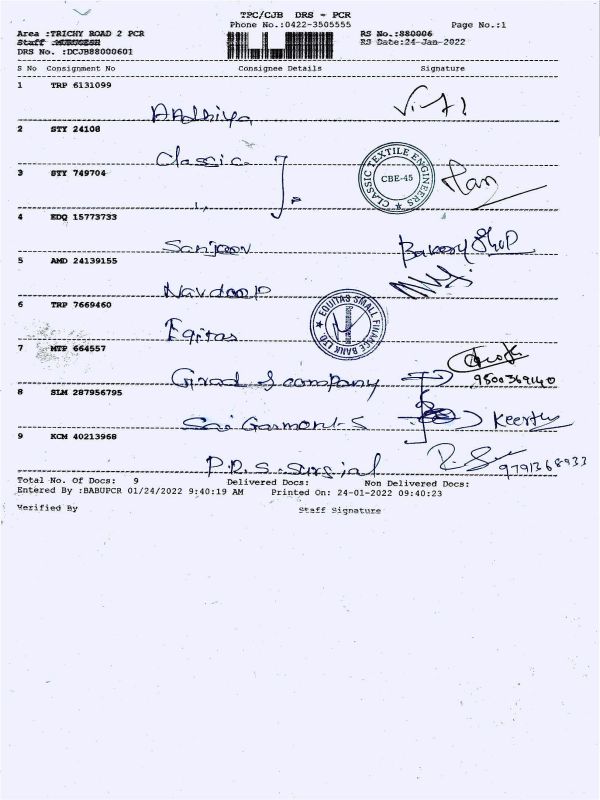 TPC/CJB DRS - PCR
Phone No.:0422-3505555 Page No.:1
Area :TRICHY ROAD 2 PCR RS No.:880006
Staff :MURUGESH RS Date:24-Jan-2022
DRS No. :DCJB88000601
S No Consignment No Consignee Details Signature
1 TRP 6131099
2 STY 24108
Classic
CLASSIC TEXTILE ENGINEERS
CBE-45
3 STY 749704
4 EDQ 15773733
Sanjeev Bakery Shop
5 AMD 24139155
Navdeep
6 TRP 7669460
Eqitas
EQUITAS SMALL FINANCE BANK LTD
7 MTP 664557
Grad & company
9500369140
8 SLM 287956795
Sai Garments Keerthi
9 KCM 40213968
P.R.S. Surgial 9791368933
Total No. Of Docs: 9 Delivered Docs: Non Delivered Docs:
Entered By :BABUPCR 01/24/2022 9:40:19 AM Printed On: 24-01-2022 09:40:23
Verified By Staff Signature